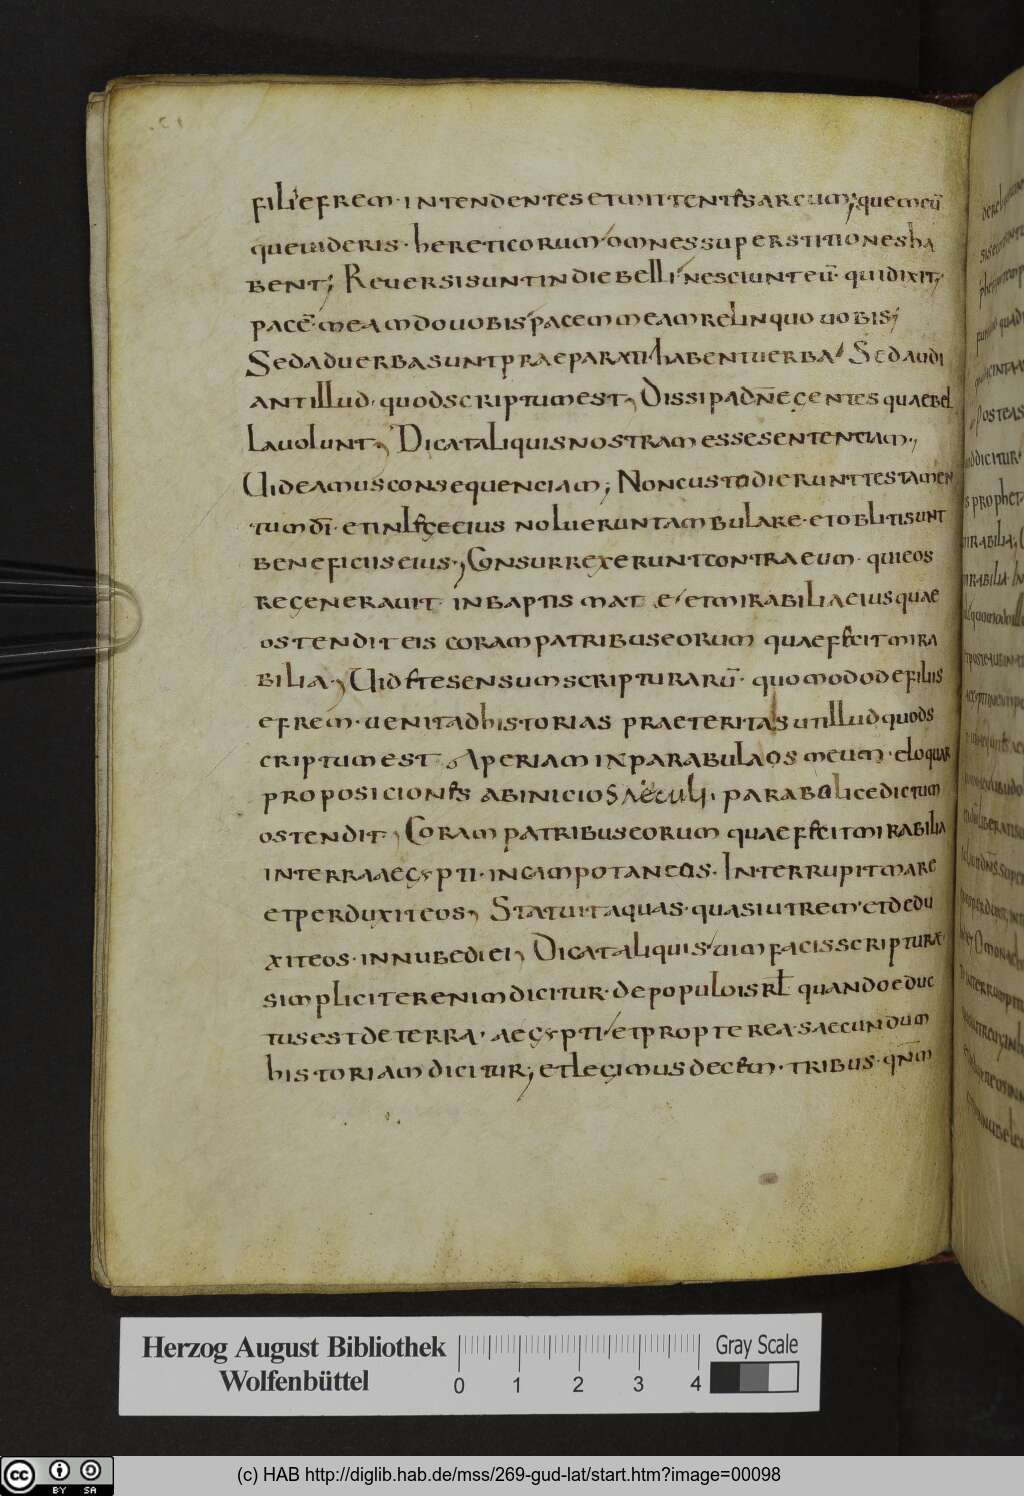 fili efrem · intendentes et mittentes arcum; quemcū
que uideris · hereticorum omnes superstitiones ha
bent; Reuersi sunt in die belli nesciunt eū · qui dixit;
pacē · meam do uobis pacem meam relinquo uobis;
Sed ad uerba sunt praeparati habent uerba Sed audi
ant illud · quod scriptum est; Dissipa dñe gentes quae bel
la uolunt; Dicat aliquis nostram esse sententiam ·,
Uideamus consequenciam; Non custodierunt testamen
tum dī · et in lege eius noluerunt ambulare · et obliti sunt
beneficiis eius ·; Consurrexerunt contra eum · qui eos
regenerauit · in baptismate et mirabilia eius quae
ostendit eis coram patribus eorum quae fecit mira
bilia ·; Uidete sensum scripturarū · quomodo de filiis
efrem · uenit ad historias praeteritas ut illud quod s
criptum est Aperiam in parabula os meum · eloquar
proposiciones ab inicio saeculi, parabolice dictum
ostendit; Coram patribus eorum quae fecit mirabilia
in terra aegypti · in campo taneos · Interrupit mare
et perduxit eos; Statuit aquas · quasi utrem et dedu
xit eos · in nube diei; Dicat aliquis uim facis scripturae
simpliciter enim dicitur · de populo isrl quando educ
tus est de terra · aegypti et propterea · saecundum
historiam dicitur; et legimus decem · tribus · qnm
Herzog August Bibliothek
Wolfenbüttel
0 1 2 3 4
Gray Scale
cc BY SA
(c) HAB http://diglib.hab.de/mss/269-gud-lat/start.htm?image=00098